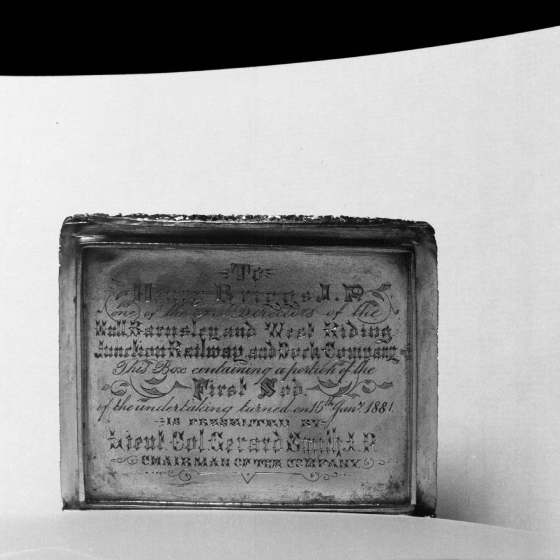 To
Henry Briggs J.P.
one of the first Directors of the
Hull Barnsley and West Riding
Junction Railway and Dock Company
This Box containing a portion of the
First Sod
of the undertaking turned on 15th Jany. 1881
IS PRESENTED BY
Lieut Col Gerard Smith J.P.
CHAIRMAN OF THE COMPANY.